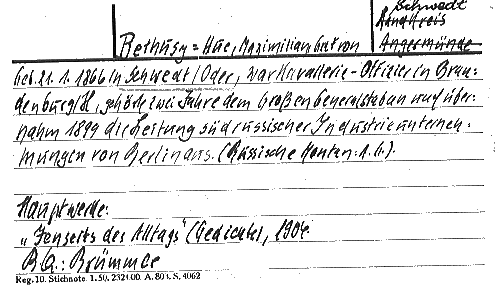 Schwedt
Landkreis
Angermünde
Bethusy-Huc, Maximilian Graf von
geb. 21. 1. 1866 in Schwedt/Oder, war Kavallerie-Offizier in Bran-
denburg/H., gehörte zwei Jahre dem Großen Generalstab an und über-
nahm 1899 die Leitung südrussischer Industrieunterneh-
mungen von Berlin aus. (Russische Montan-A.G.).
Hauptwerke:
"Jenseits des Alltags" (Gedichte), 1904.
B.Q.: Brümmer
Reg. 10. Stichnote. 1. 50. 2324 00. A. 803. S. 4062